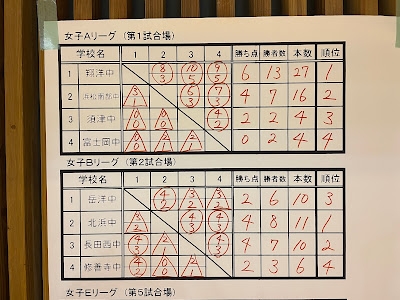 女子Aリーグ（第1試合場）
学校名 1 2 3 4 勝ち点 勝者数 本数 順位
1 翔洋中 8/3 10/5 9/5 6 13 27 1
2 浜松南部中 3/1 6/3 7/3 4 7 16 2
3 須津中 0/0 0/0 4/2 2 2 4 3
4 富士岡中 0/0 2/1 2/1 0 2 4 4
女子Bリーグ（第2試合場）
学校名 1 2 3 4 勝ち点 勝者数 本数 順位
1 岳洋中 4/2 3/2 3/2 2 6 10 3
2 北浜中 3/2 4/3 4/3 4 8 11 1
3 長田西中 4/3 2/1 4/3 4 7 10 2
4 修善寺中 4/2 0/0 2/1 2 3 6 4
女子Eリーグ（第5試合場）